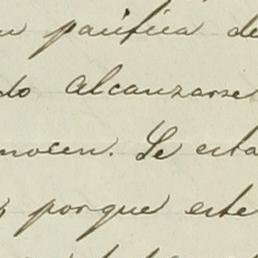 pacífica de
do alcanzarse
nocen. Se esta
porque este